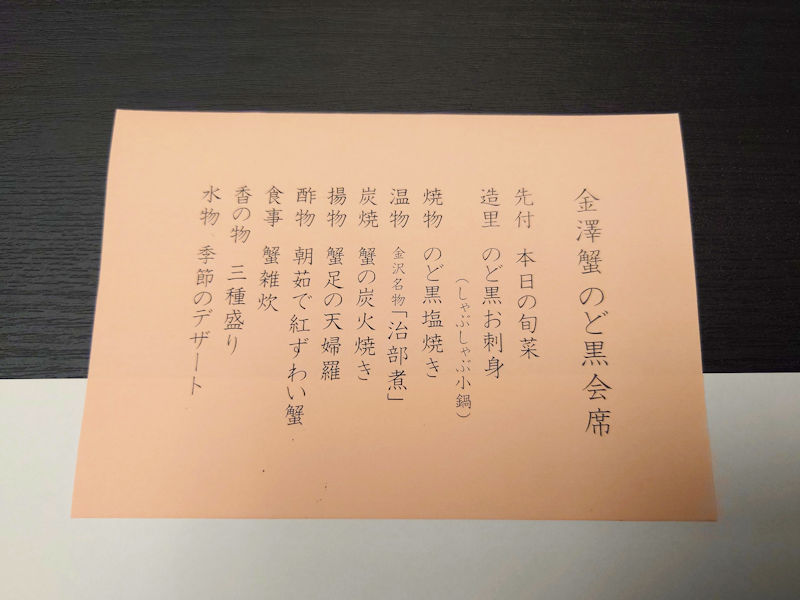 金澤蟹 のど黒会席
先付 本日の旬菜
造里 のど黒お刺身
(しゃぶしゃぶ小鍋)
焼物 のど黒塩焼き
温物 金沢名物「治部煮」
炭焼 蟹の炭火焼き
揚物 蟹足の天婦羅
酢物 朝茹で紅ずわい蟹
食事 蟹雑炊
香の物 三種盛り
水物 季節のデザート